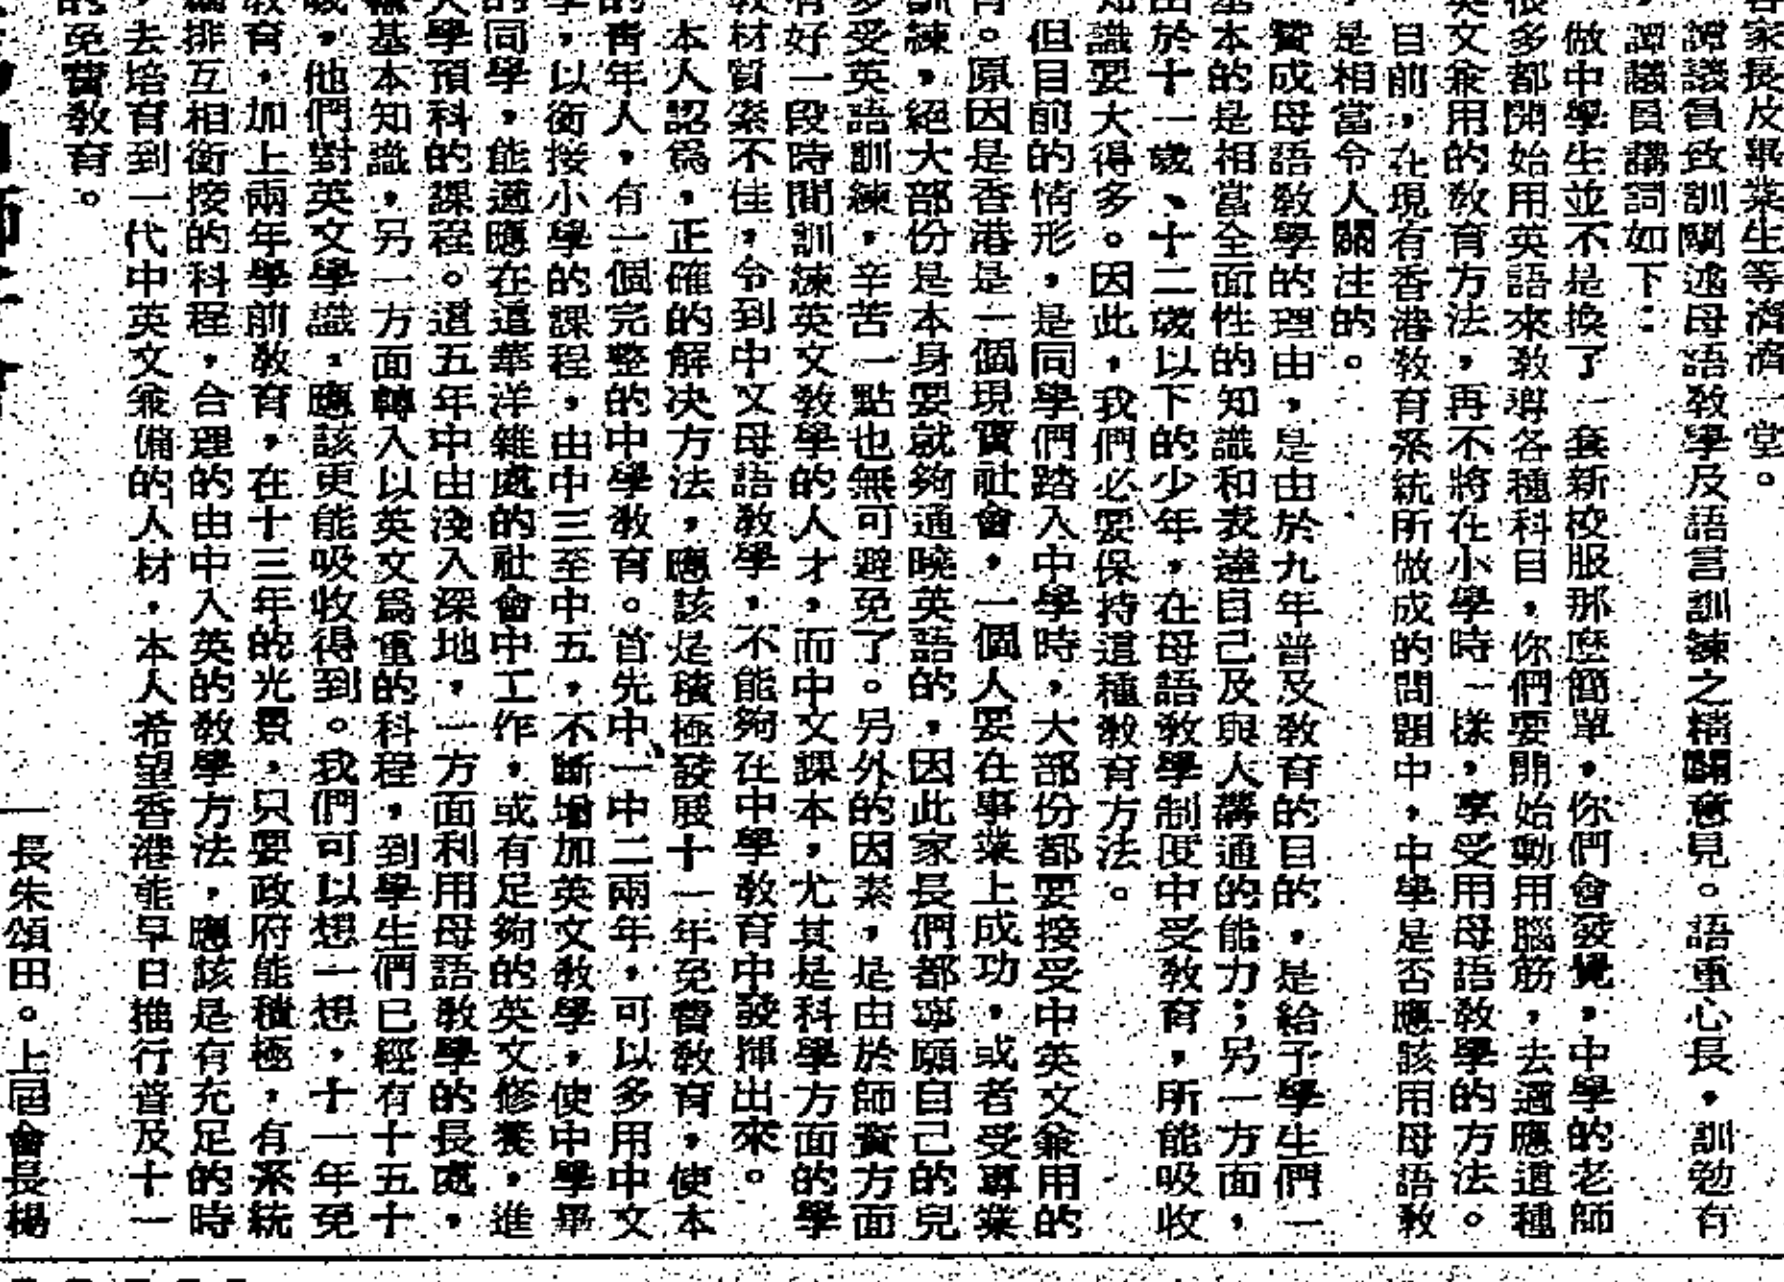 客家長及畢業生等濟濟一堂。
譚議員致訓闡述母語教學及語言訓練之精闢意見。語重心長，訓勉有
，譚議員講詞如下：
做中學生並不是換了一套新校服那麼簡單，你們會發覺，中學的老師
很多都開始用英語來教導各種科目，你們要開始動用腦筋，去適應這種
英文兼用的教育方法，再不將在小學時一樣，享受用母語教學的方法。
目前，在現有香港教育系統所做成的問題中，中學是否應該用母語教
，是相當令人關注的。
贊成母語教學的理由，是由於九年普及教育的目的，是給予學生們一
基本的是相當全面性的知識和表達自己及與人溝通的能力；另一方面，
由於十一歲、十二歲以下的少年，在母語教學制度中受教育，所能吸收
知識要大得多。因此，我們必要保持這種教育方法。
但目前的情形，是同學們踏入中學時，大部份都要接受中英文兼用的
育。原因是香港是一個現實社會，一個人要在事業上成功，或者受專業
訓練，絕大部份是本身要就夠通曉英語的，因此家長們都寧願自己的兒
多受英語訓練，辛苦一點也無可避免了。另外的因素，是由於師資方面
有好一段時間訓練英文教學的人才，而中文課本，尤其是科學方面的學
教材質素不佳，令到中文母語教學，不能夠在中學教育中發揮出來。
本人認為，正確的解決方法，應該是積極發展十一年免費教育，使本
的青年人，有一個完整的中學教育。首先中一中二兩年，可以多用中文
學，以銜接小學的課程，由中三至中五，不斷增加英文教學，使中學畢
的同學，能適應在這華洋雜處的社會中工作，或有足夠的英文修養，進
大學預科的課程。這五年中由淺入深地，一方面利用母語教學的長處，
基本知識，另一方面轉入以英文為重的科程，到學生們已經有十五十
歲，他們對英文學識，應該更能吸收得到。我們可以想一想，十一年免
教育，加上兩年學前教育，在十三年的光景，只要政府能積極，有系統
編排互相銜接的科程，合理的由中入英的教學方法，應該是有充足的時
，去培育到一代中英文兼備的人材，本人希望香港能早日推行普及十一
的免費教育。
長朱頌田。上屆會長楊